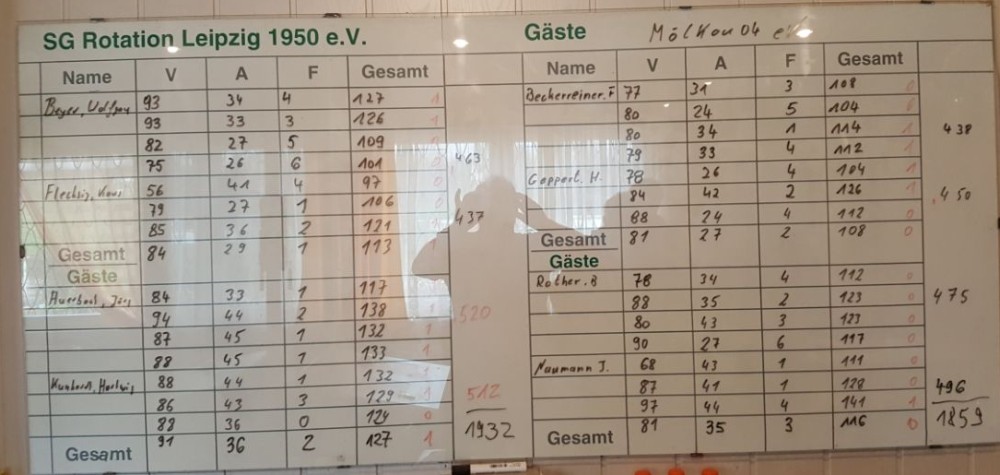 SG Rotation Leipzig 1950 e.V. Gäste Mölkau 04 e.V.
Name V A F Gesamt Name V A F Gesamt
Beyer, Wolfgang 93 34 4 127 1 Beckerreiner. F 77 31 3 108 0
93 33 3 126 1 80 24 5 104 0
82 27 5 109 80 34 1 114 1 438
75 26 6 101 463 79 33 4 112 1
Flechsig, Klaus 56 41 4 97 0 Geppert. H. 78 26 4 104 1
79 27 1 106 0 84 42 2 126 1 450
85 36 2 121 437 88 24 4 112 0
Gesamt 84 29 1 113 1 Gesamt 81 27 2 108 0
Gäste Gäste
Auerbach, Jörg 84 33 1 117 Rother. B 78 34 4 112 0
94 44 2 138 1 520 88 35 2 123 0 475
87 45 1 132 1 80 43 3 123 0
88 45 1 133 1 90 27 6 117 0
Hartwig 88 44 1 132 1 Naumann J. 68 43 1 111 0
86 43 3 129 1 512 87 41 1 128 0 496
88 36 0 124 0 97 44 4 141 1
Gesamt 91 36 2 127 1 1932 Gesamt 81 35 3 116 0 1859